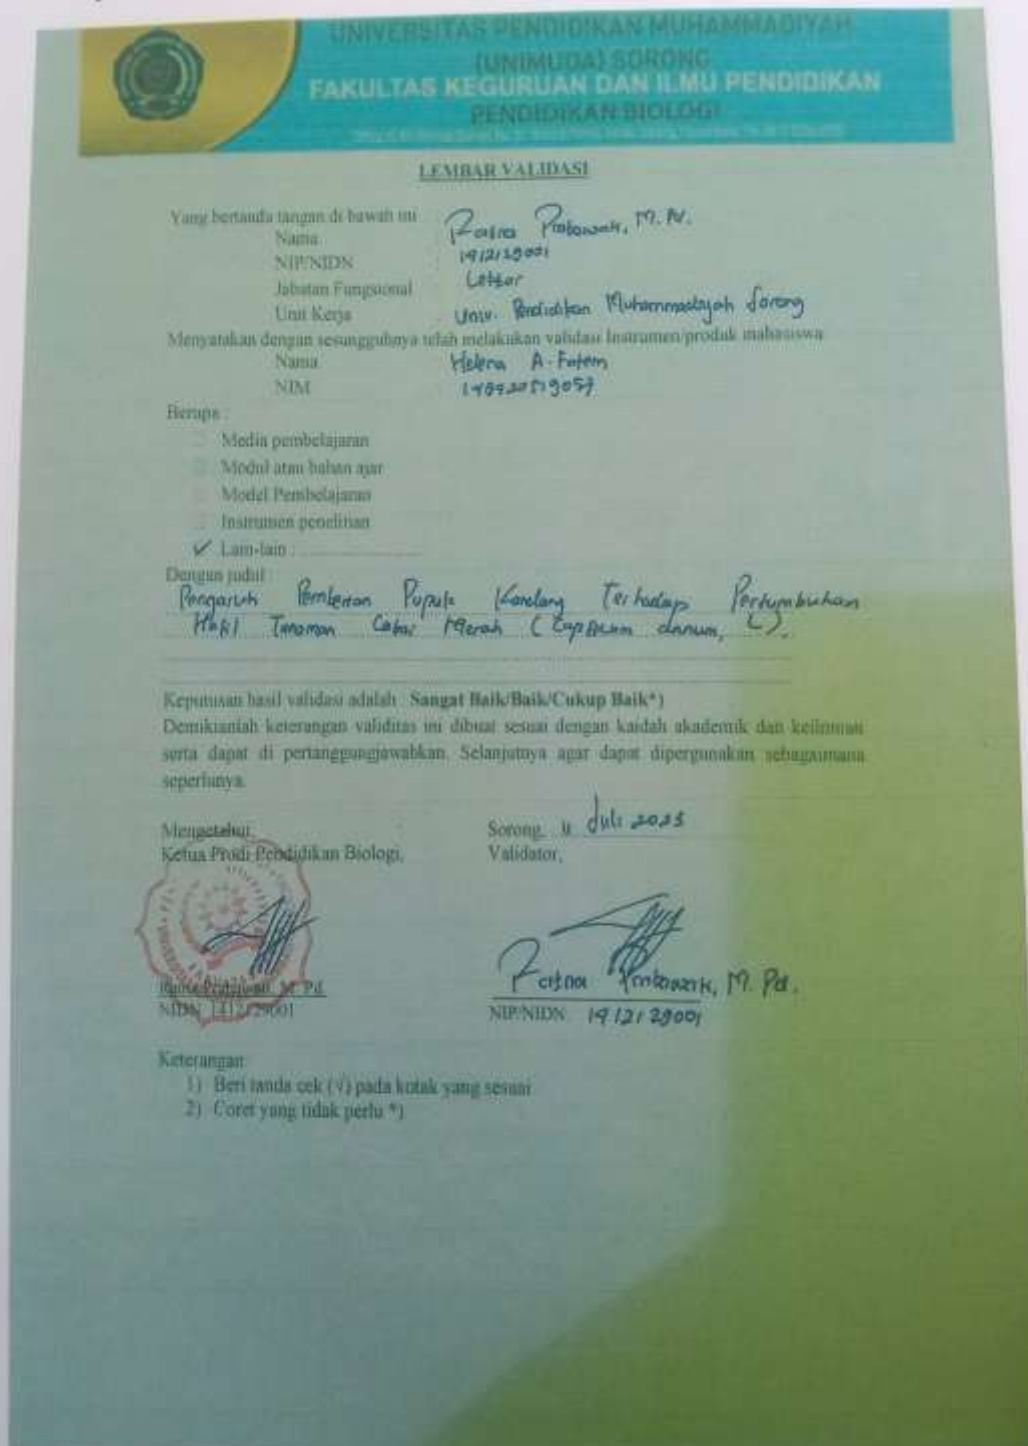 UNIVERSITAS PENDIDIKAN MUHAMMADIYAH
(UNIMUDA) SORONG
FAKULTAS KEGURUAN DAN ILMU PENDIDIKAN
PENDIDIKAN BIOLOGI
LEMBAR VALIDASI
Yang bertanda tangan di bawah ini
Nama : Ratna Prabawati, M. Pd.
NIP/NIDN : 1412129001
Jabatan Fungsional : Lektor
Unit Kerja : Univ. Pendidikan Muhammadiyah Sorong
Menyatakan dengan sesungguhnya telah melakukan validasi Instrumen/produk mahasiswa
Nama : Helena A. Fatem
NIM :
Berupa :
Media pembelajaran
Modul atau bahan ajar
Model Pembelajaran
Instrumen penelitian
✓ Lain-lain :
Dengan judul :
Pengaruh Pemberian Pupuk Kandang Terhadap Pertumbuhan
Hasil Tanaman Cabai Merah (Capsicum annum, L).
Keputusan hasil validasi adalah : Sangat Baik/Baik/Cukup Baik*)
Demikianlah keterangan validitas ini dibuat sesuai dengan kaidah akademik dan keilmuan
serta dapat di pertanggungjawabkan. Selanjutnya agar dapat dipergunakan sebagaimana
seperlunya.
Mengetahui, Sorong, 11 Juli 2023
Ketua Prodi Pendidikan Biologi, Validator,
Ratna Prabawati, M. Pd. Ratna Prabawati, M. Pd.
NIDN. 1412129001 NIP/NIDN 1412129001
Keterangan:
1) Beri tanda cek (√) pada kotak yang sesuai
2) Coret yang tidak perlu *)